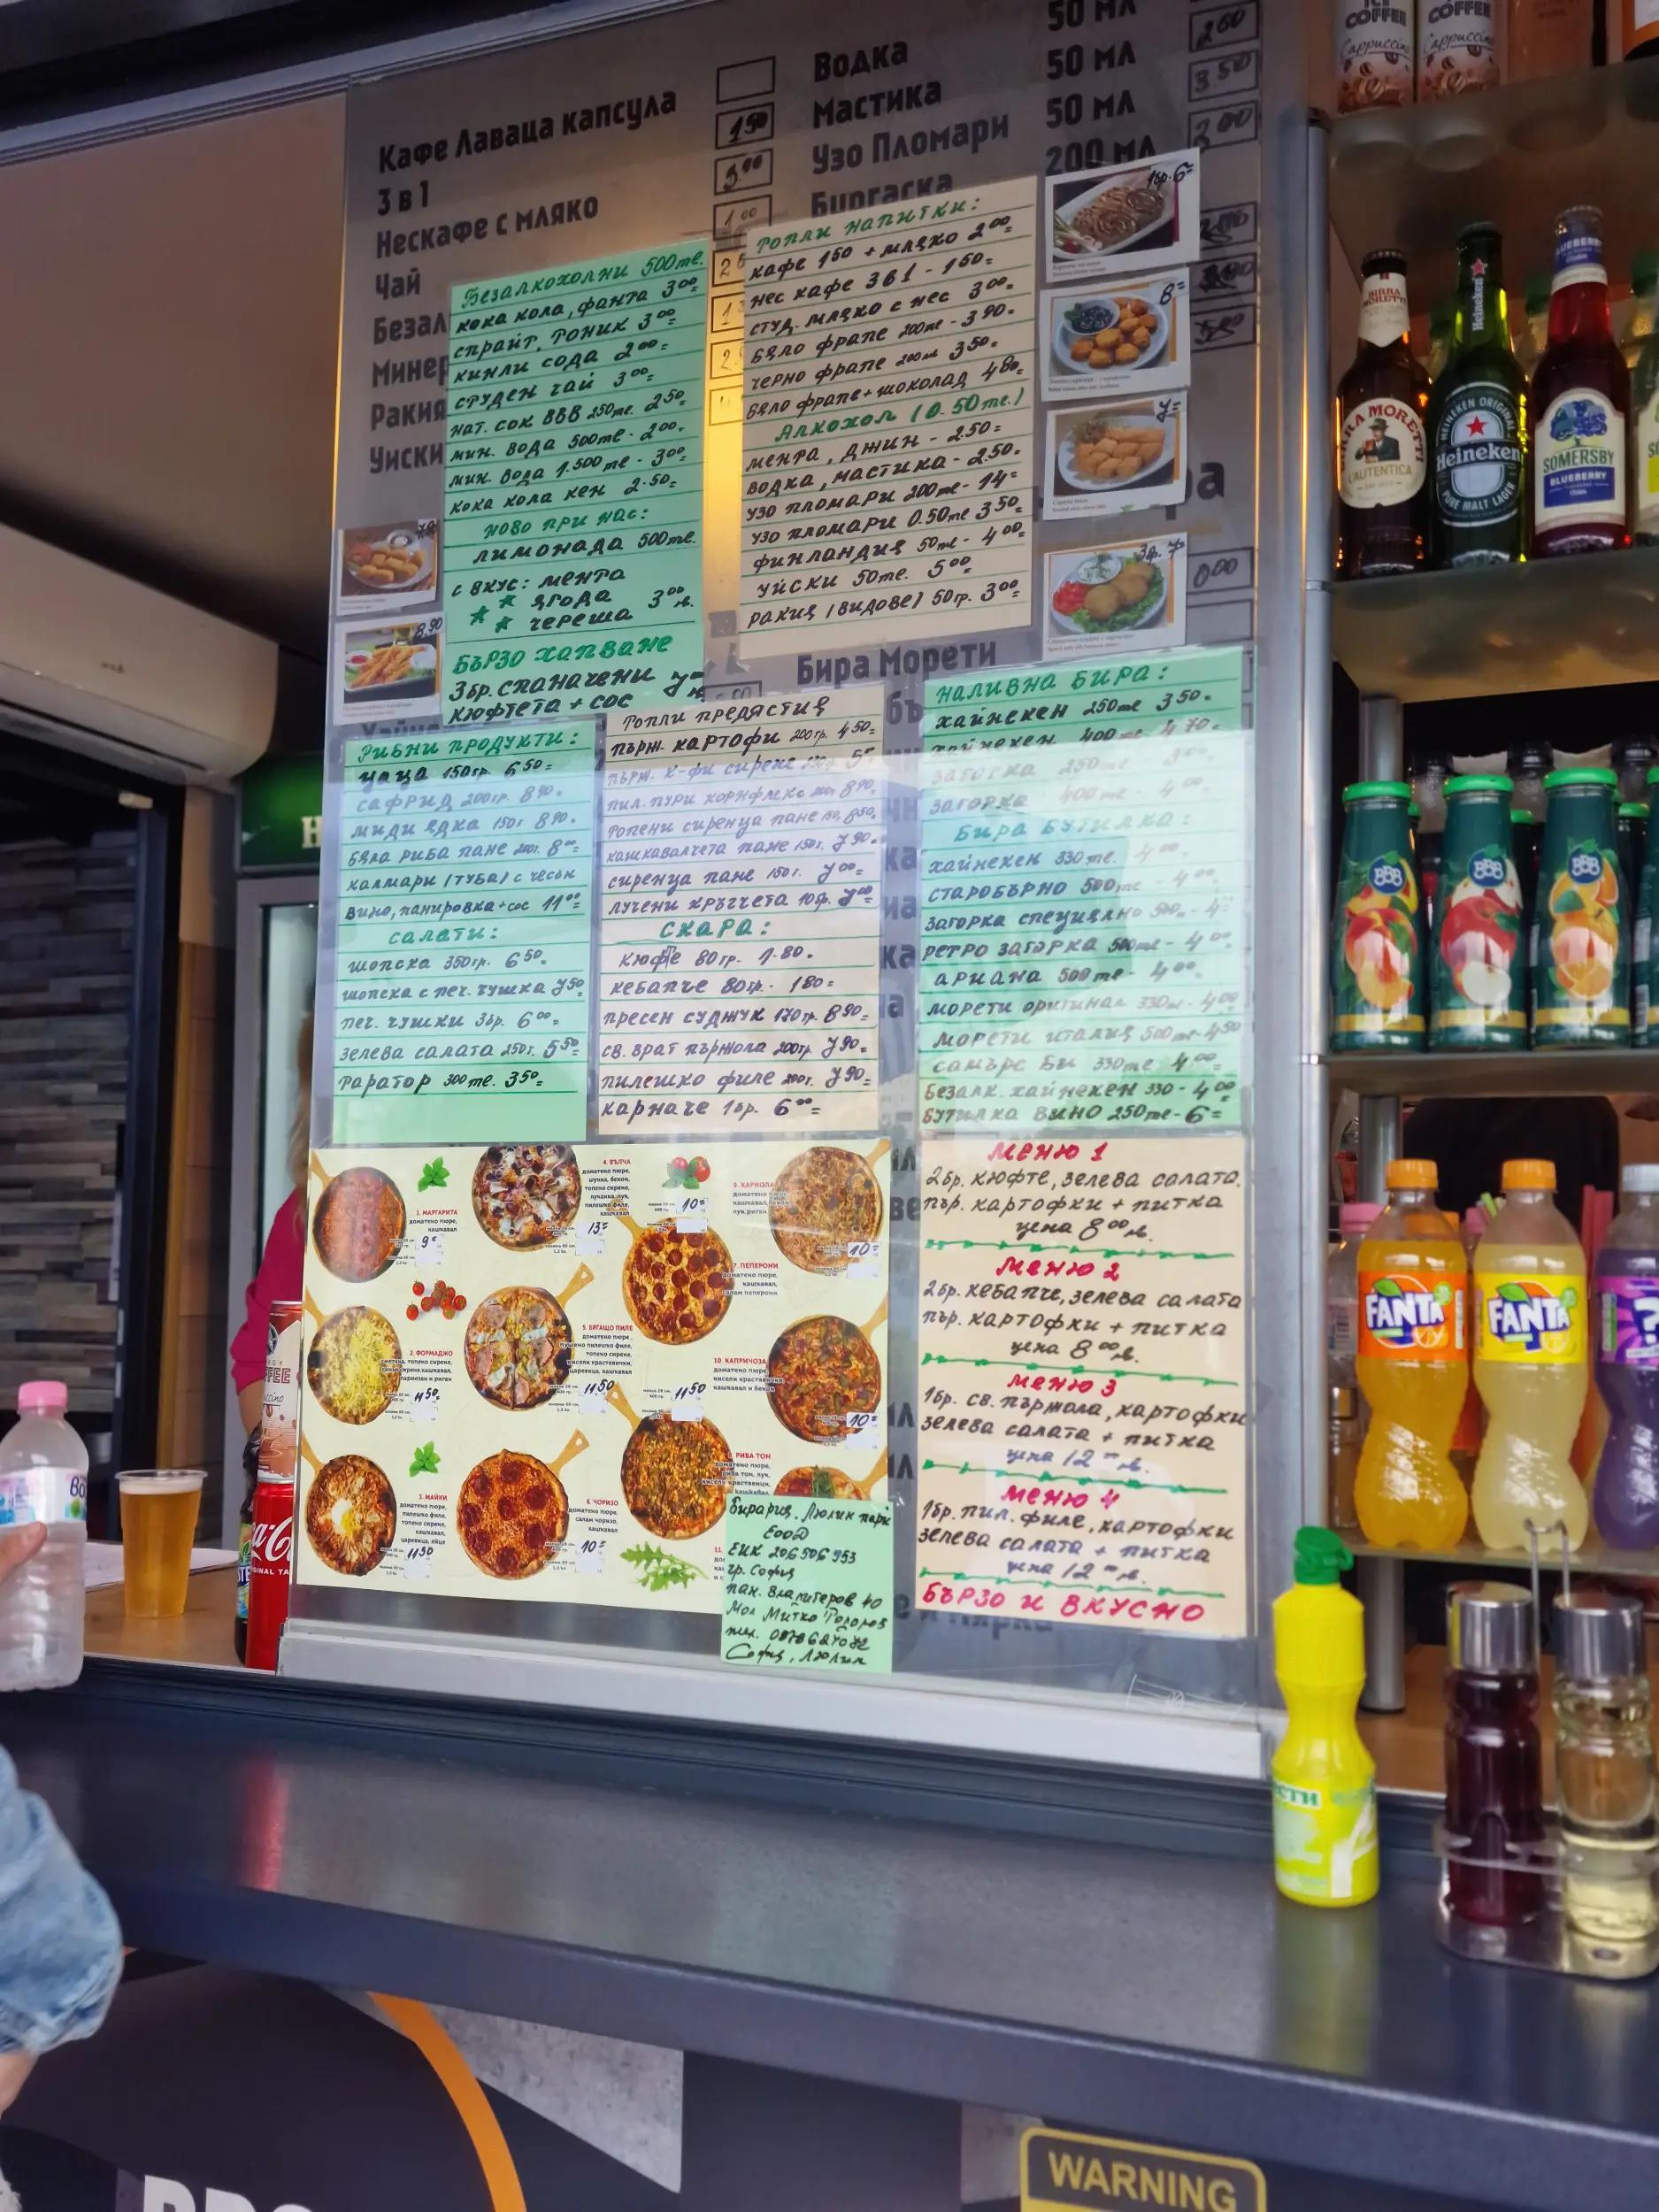 Кафе Лаваца капсула
3 в 1
1 50
Нескафе с мляко
3.00
Чай
1 00
Безал
Минер
Ракия
Уиски
50 МЛ
2 60
Водка
50 МЛ
3.50
Мастика
50 МЛ
3 00
Узо Пломари
200 МЛ
Безалкохолни 500ml.
кока кола, фанта 3 00=
спрайт, тоник 3 00=
кинли сода 2 00=
студен чай 3 00=
нат. сок BBB 250ml. 2 50=
мин. вода 500ml - 2 00=
мин. вода 1.500ml - 3 00=
кока кола кен 2.50=
ново при нас:
лимонада 500ml.
с вкус: мента
ягода 3 00 л.
череша
Бързо хапване
3бр. спаначени 7=
кюфтета + сос
Топли напитки:
кафе 1 50 + мляко 2 00=
нес кафе 3в1 - 1 50=
студ. мляко с нес 3 00=
бяло фрапе 200ml - 3 90=
черно фрапе 200ml 3 50=
бяло фрапе + шоколад 4 80=
Алкохол (0.50ml.)
мента, джин - 2.50=
водка, мастика - 2.50=
узо пломари 200ml - 14=
узо пломари 0.50ml 3 50=
финландия 50ml - 4 00=
уйски 50ml. 5 00=
ракия (видове) 50гр. 3 00=
1бр. 6=
8=
7=
3бр. 7=
8,90
Бира Морети
Рибни продукти:
цаца 150гр. 6 50=
сафрид 200гр. 8 90=
миди едка 150г 8 90=
бяла риба пане 200г. 8 00=
калмари (туба) с чесън
вино, панировка + сос 11 00=
салати:
шопска 350гр. 6 50=
шопска с печ. чушка 7 50=
печ. чушки 3бр. 6 00=
зелева салата 250г. 5 50=
Таратор 300ml. 3 50=
Топли предястия
пърж. картофи 200гр. 4 50=
пърж. к-фи сирене
пил. пури корнфлекс 8 90=
топени сиренца пане 150, 8 50=
кашкавалчета пане 150г. 7 90=
сиренца пане 150г. 7 00=
лучени кръгчета 10бр. 7 00=
Скара:
кюфте 80гр. 1.80=
кебапче 80гр. 1 80=
пресен суджук 170гр. 8 90=
св. врат пържола 200гр. 7 90=
пилешко филе 200г. 7 90=
карначе 1бр. 6 00=
Наливна бира:
хайнекен 250ml 3 50=
хайнекен 400ml 4 70=
загорка 250ml 3 00=
загорка 400ml - 4 00=
Бира бутилка:
хайнекен 330ml. 4 00=
старобърно 500ml - 4 00=
загорка специално 500ml - 4=
ретро загорка 500ml - 4 00=
ариана 500ml - 4 00=
морети оригинал 330ml - 4 00
морети италия 500ml - 4 50
самърс би 330ml 4 00=
безалк. хайнекен 330 - 4 00=
бутилка вино 250ml - 6=
Меню 1
2бр. кюфте, зелева салата.
пър. картофки + питка
цена 8 00 л.
Меню 2
2бр. кебапче, зелева салата
пър. картофки + питка
цена 8 00 л.
Меню 3
1бр. св. пържола, картофки
зелева салата + питка
цена 12 00 л.
Меню 4
1бр. пил. филе, картофки
зелева салата + питка
цена 12 00 л.
Бързо и вкусно
1. МАРГАРИТА
доматено пюре,
кашкавал
9=
2. ФОРМАДЖО
11 50
3. МАЙКИ
доматено пюре,
пилешко филе,
топено сирене,
кашкавал,
царевица, яйца
11 50
4. ВЪЛЧА
доматено пюре,
шунка, бекон,
топено сирене,
луканка, лук,
пилешко филе,
кашкавал
13=
5. БЯГАЩО ПИЛЕ
доматено пюре,
пушено пилешко филе,
топено сирене,
кисели краставички,
царевица, кашкавал
11 50
6. ЧОРИЗО
доматено пюре,
салам чоризо,
кашкавал
10=
10=
7. ПЕПЕРОНИ
доматено пюре,
кашкавал,
салам пеперони
11 50
РИБА ТОН
доматено пюре,
риба тон, лук,
кисели краставички,
кашкавал
9. КАРНОЛА
10=
10. КАПРИЧОЗА
10=
Бирария. Люлин парк
ЕООД
ЕИК 206506953
гр. София
Мол Митко Тодоров
тел. 0878627072
София, Люлин
ICY
COFFEE
Cappuccino
COFFEE
Cappuccino
BIRRA MORETTI
L'AUTENTICA
Heineken
HEINEKEN ORIGINAL
Heineken
PURE MALT LAGER
BLUEBERRY
SOMERSBY
BLUEBERRY
BBB
BBB
BBB
FANTA
FANTA
?
WARNING